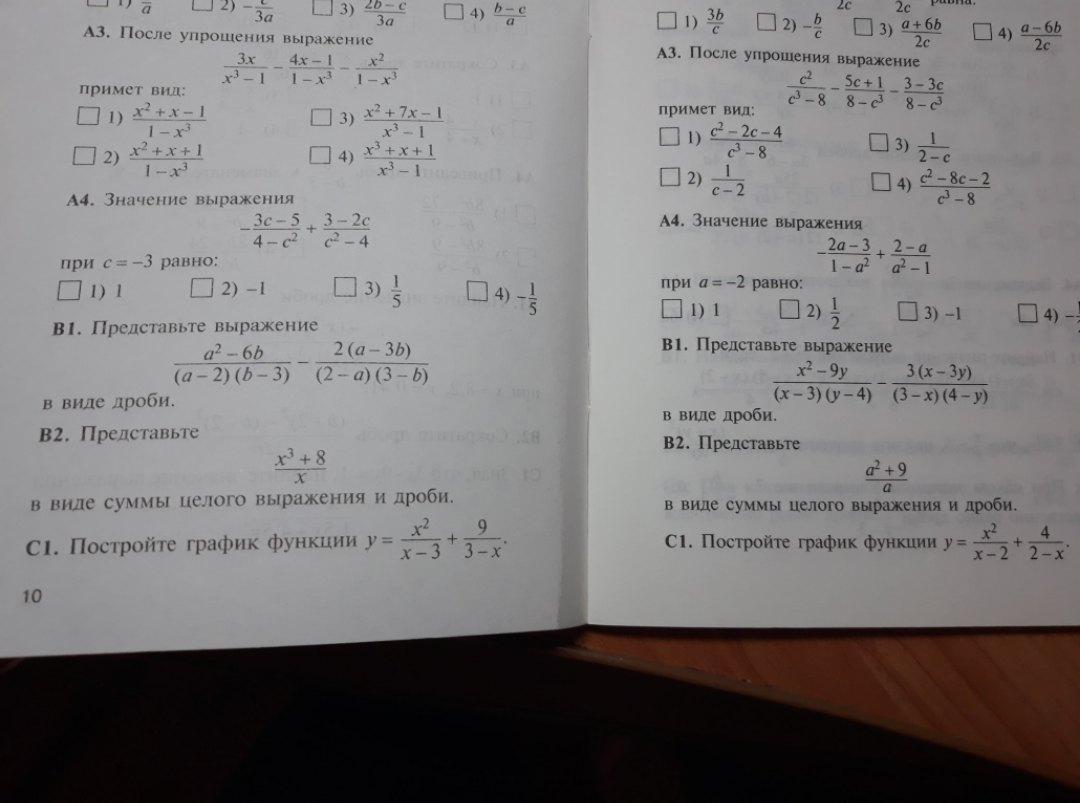 1) a 2) −c/3a 3) (2b − c)/3a 4) (b − c)/a
А3. После упрощения выражение
3x/(x³ − 1) − (4x − 1)/(1 − x³) − x²/(1 − x³)
примет вид:
1) (x² + x − 1)/(1 − x³) 3) (x² + 7x − 1)/(x³ − 1)
2) (x² + x + 1)/(1 − x³) 4) (x³ + x + 1)/(x³ − 1)
А4. Значение выражения
−(3c − 5)/(4 − c²) + (3 − 2c)/(c² − 4)
при c = −3 равно:
1) 1 2) −1 3) 1/5 4) −1/5
В1. Представьте выражение
(a² − 6b)/((a − 2)(b − 3)) − 2(a − 3b)/((2 − a)(3 − b))
в виде дроби.
В2. Представьте
(x³ + 8)/x
в виде суммы целого выражения и дроби.
С1. Постройте график функции y = x²/(x − 3) + 9/(3 − x).
10
2c 2c
1) 3b/c 2) −b/c 3) (a + 6b)/2c 4) (a − 6b)/2c
А3. После упрощения выражение
c²/(c³ − 8) − (5c + 1)/(8 − c³) − (3 − 3c)/(8 − c³)
примет вид:
1) (c² − 2c − 4)/(c³ − 8) 3) 1/(2 − c)
2) 1/(c − 2) 4) (c² − 8c − 2)/(c³ − 8)
А4. Значение выражения
−(2a − 3)/(1 − a²) + (2 − a)/(a² − 1)
при a = −2 равно:
1) 1 2) 1/2 3) −1 4) −
В1. Представьте выражение
(x² − 9y)/((x − 3)(y − 4)) − 3(x − 3y)/((3 − x)(4 − y))
в виде дроби.
В2. Представьте
(a² + 9)/a
в виде суммы целого выражения и дроби.
С1. Постройте график функции y = x²/(x − 2) + 4/(2 − x).